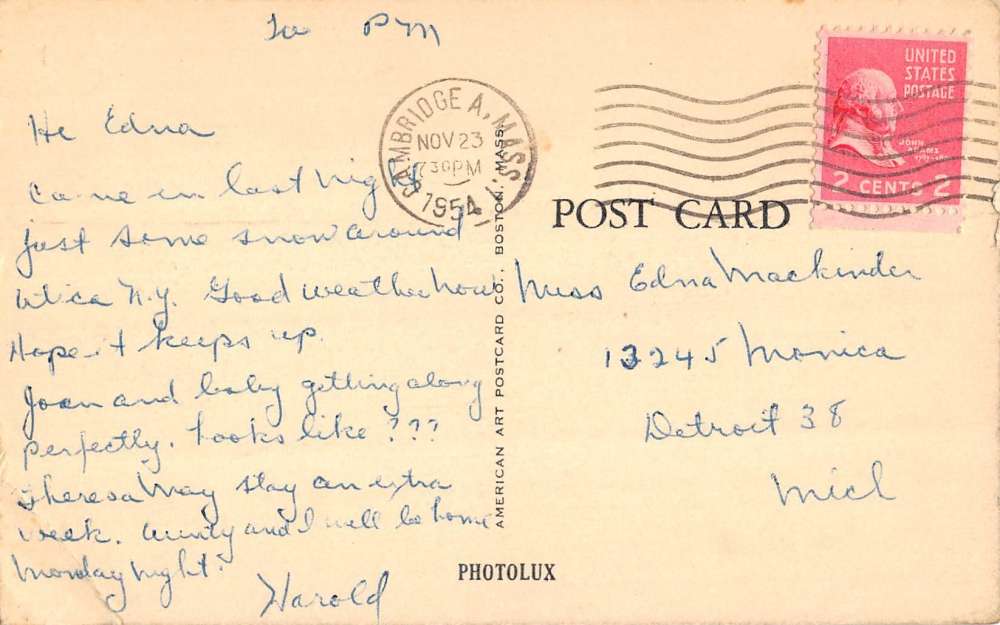 He Edna
came in last night
just some snow around
Utica N.Y. Good weather now
Hope it keeps up.
Joan and baby getting along
perfectly. Looks like ???
Theresa may stay an extra
week. Aunty and I will be home
Monday night.
Harold
CAMBRIDGE A, MASS.
NOV 23
730PM
1954
UNITED
STATES
POSTAGE
JOHN
ADAMS
2 CENTS 2
POST CARD
Miss Edna Mackinder
13245 Monica
Detroit 38
Mich
AMERICAN ART POSTCARD CO., BOSTON, MASS.
PHOTOLUX